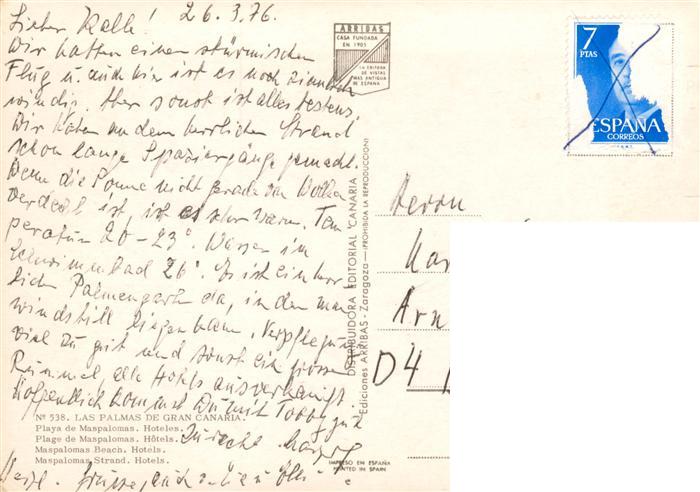 Lieber Kalle! 26.3.76.
Wir hatten einen stürmischen
Flug u. auch hier ist es noch ziemlich
windig. Aber sonst ist alles bestens.
Wir haben an dem herrlichen Strand
schon lange Spaziergänge gemacht.
Wenn die Sonne nicht gerade von Wolken
verdeckt ist, ist es sehr warm. Tem
peratur 20-23°. Wasser im
Schwimmbad 26°. Es ist ein herr
licher Palmengarten da, in dem man
windstill liegen kann. Verpflegung
viel zu gut und sonst ein grosser
Rummel, alle Hotels ausverkauft
Hoffentlich kommst Du mit Tobby gut
zurecht.
Herzl. Grüsse auch
ARRIBAS
CASA FUNDADA
EN 1905
LA EDITORA
DE VISTAS
MAS ANTIGUA
DE ESPAÑA
7
PTAS
ESPAÑA
CORREOS
DISTRIBUIDORA EDITORIAL CANARIA
Ediciones ARRIBAS - Zaragoza - (PROHIBIDA LA REPRODUCCION)
Herrn
D4
Nº 538. LAS PALMAS DE GRAN CANARIA.
Playa de Maspalomas. Hoteles.
Plage de Maspalomas. Hôtels.
Maspalomas Beach. Hotels.
Maspalomas Strand. Hotels.
IMPRESO EN ESPAÑA
PRINTED IN SPAIN